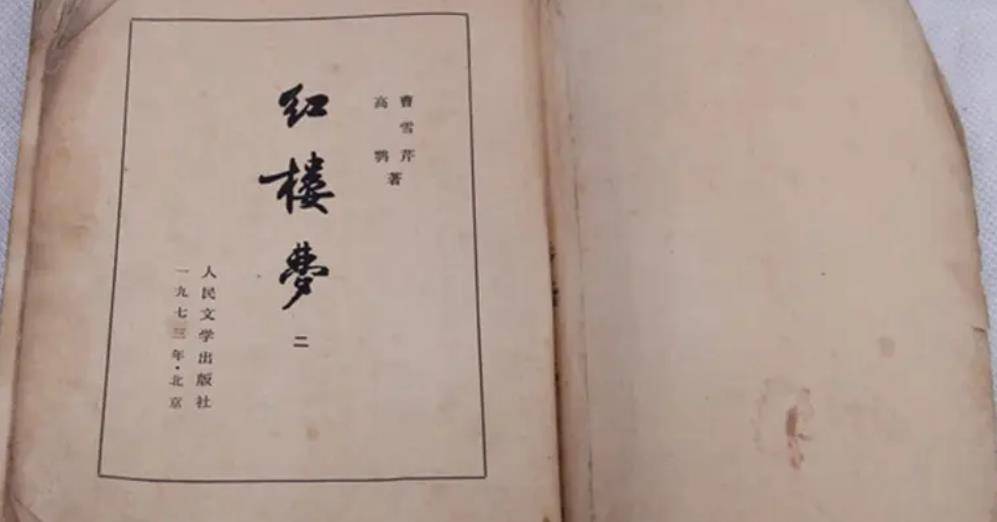 曹雪芹
高鹗
著
红楼梦
二
人民文学出版社
一九七三年·北京